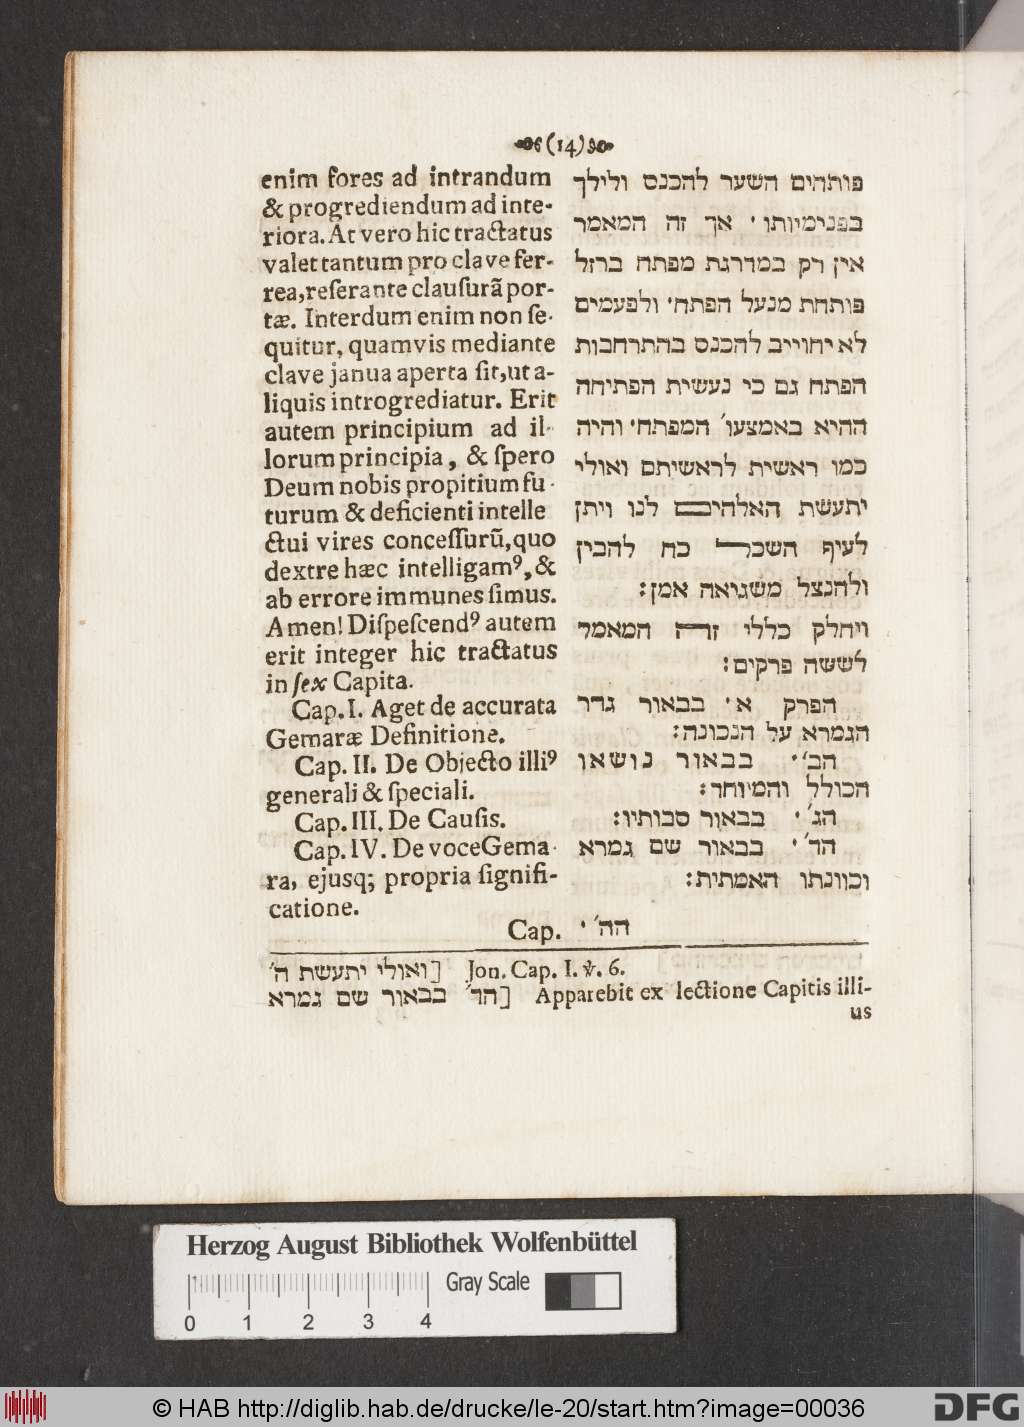 (14)
enim fores ad intrandum
& progrediendum ad inte-
riora. At vero hic tractatus
valet tantum pro clave fer-
rea, reſerante clauſurã por-
tæ. Interdum enim non ſe-
quitur, quamvis mediante
clave janua aperta ſit, ut a-
liquis introgrediatur. Erit
autem principium ad il-
lorum principia, & ſpero
Deum nobis propitium fu-
turum & deficienti intelle
ctui vires conceſſurũ, quo
dextre hæc intelligamꝰ, &
ab errore immunes ſimus.
Amen! Diſpeſcendꝰ autem
erit integer hic tractatus
in ſex Capita.
Cap. I. Aget de accurata
Gemaræ Definitione.
Cap. II. De Objecto illiꝰ
generali & ſpeciali.
Cap. III. De Cauſis.
Cap. IV. De voce Gema-
ra, ejusq; propria ſignifi-
catione.
Cap.
פותהים השער להכנס ולילך
בפנימיותו י אך זה המאמר
אין רק במדרגת מפתח ברזל
פותחת מנעל הפתחי ולפעמים
לא יחוייב להכנס בהתרחבות
הפתח גם כי נעשית הפתיחה
ההיא באמצעו׳ המפתחי והיה
כמו ראשית לראשיתם ואולי
יתעשת האלהים לנו ויתן
לעיף השכל כח להבין
ולהנצל משגיאה אמן:
ויחלק כללי זה המאמר
לששה פרקים:
הפרק א׳ בבאור גדר
הגמרא על הנכונה:
הב׳י בבאור נושאו
הכולל והמיוחר:
הג׳י בבאור סבותיו:
הד׳י בבאור שם גמרא
וכוונתו האמתית:
הה׳י
ואולי יתעשת ה׳] Jon. Cap. I. ꝟ. 6.
הד׳ בבאור שם גמרא] Apparebit ex lectione Capitis illi-
us
Herzog August Bibliothek Wolfenbüttel
Gray Scale
0 1 2 3 4
© HAB http://diglib.hab.de/drucke/le-20/start.htm?image=00036
DFG